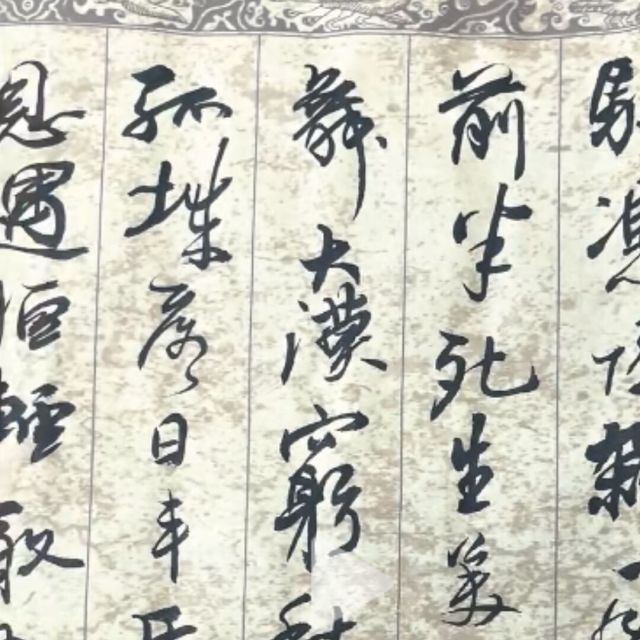 騎憑陵雜
前半死生美
舞大漠窮秋
孤城落日斗兵
恩遇恒輕敵